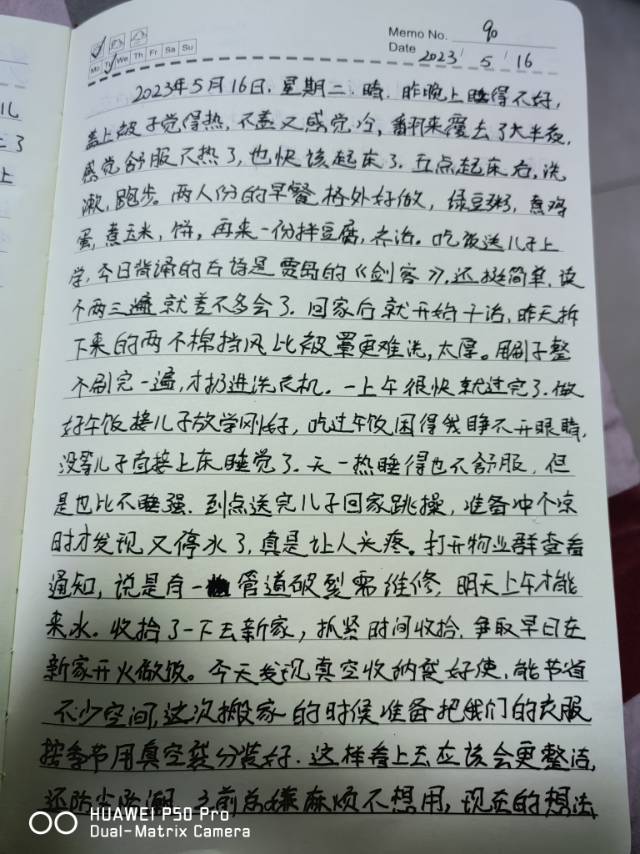 Memo No. 90
Mo Tu We Th Fr Sa Su
Date 2023 / 5 / 16
2023年5月16日,星期二.晴.昨晚上睡得不好,
盖上被子觉得热,不盖又感觉冷,翻来覆去了大半夜,
感觉舒服不热了,也快该起床了.五点起床后,洗
漱,跑步。两人份的早餐格外好做,绿豆粥,煮鸡
蛋,煮玉米,饼,再来一份拌豆腐,齐活。吃饭送儿子上
学,今日背诵的古诗是贾岛的《剑客》,还挺简单,读
个两三遍就差不多会了.回家后就开始干活,昨天拆
下来的两个棉挡风比被罩更难洗,太厚。用刷子整
个刷完一遍,才扔进洗衣机.一上午很快就过完了.做
好午饭接儿子放学刚好,吃过午饭困得我睁不开眼睛,
没等儿子直接上床睡觉了.天一热睡得也不舒服,但
是也比不睡强.到点送完儿子回家跳操,准备冲个凉
时才发现又停水了,真是让人头疼。打开物业群查看
通知,说是有一管道破裂需维修,明天上午才能
来水.收拾了一下去新家,抓紧时间收拾.争取早日在
新家开火做饭。今天发现真空收纳袋好使,能节省
不少空间,这次搬家的时候准备把我们的衣服
按季节用真空袋分装好.这样看上去应该会更整洁,
还防尘防潮.之前总嫌麻烦不想用,现在的想法
HUAWEI P50 Pro
Dual-Matrix Camera